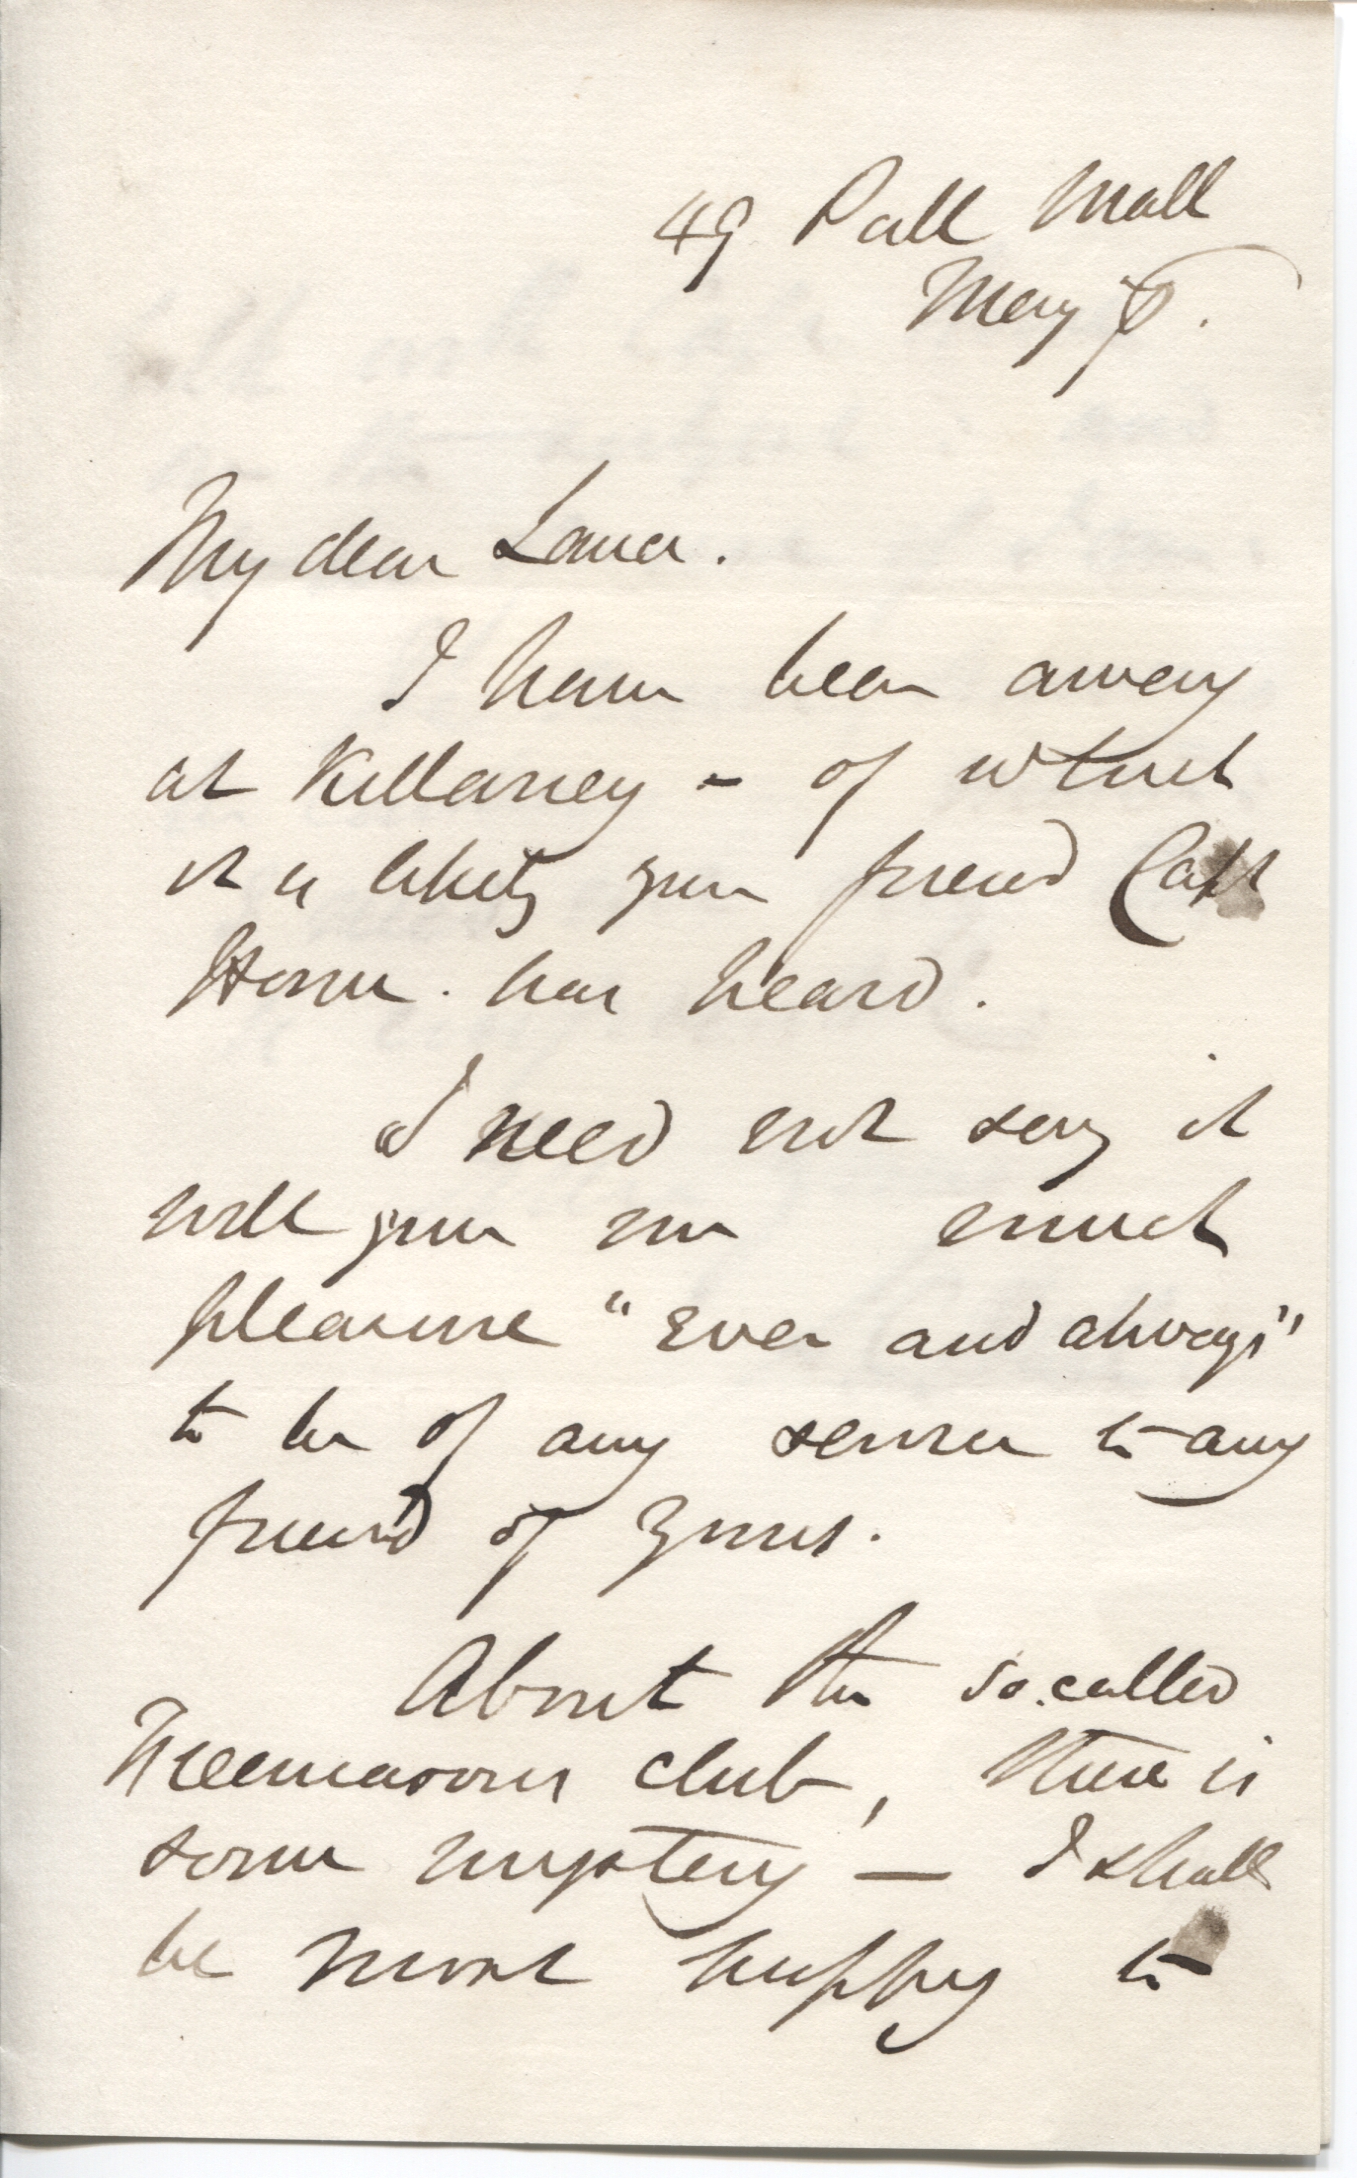 49 Pall Mall
May 8.
My dear Laura.
I have been away
at Killarney - of which
it is likely your friend Capt
Horne. has heard.
I need not say it
will give me much
pleasure "Ever and always"
to be of any service to any
friend of yours.
About the so.called
Freemasons club, there is
some mystery — I shall
be most happy to